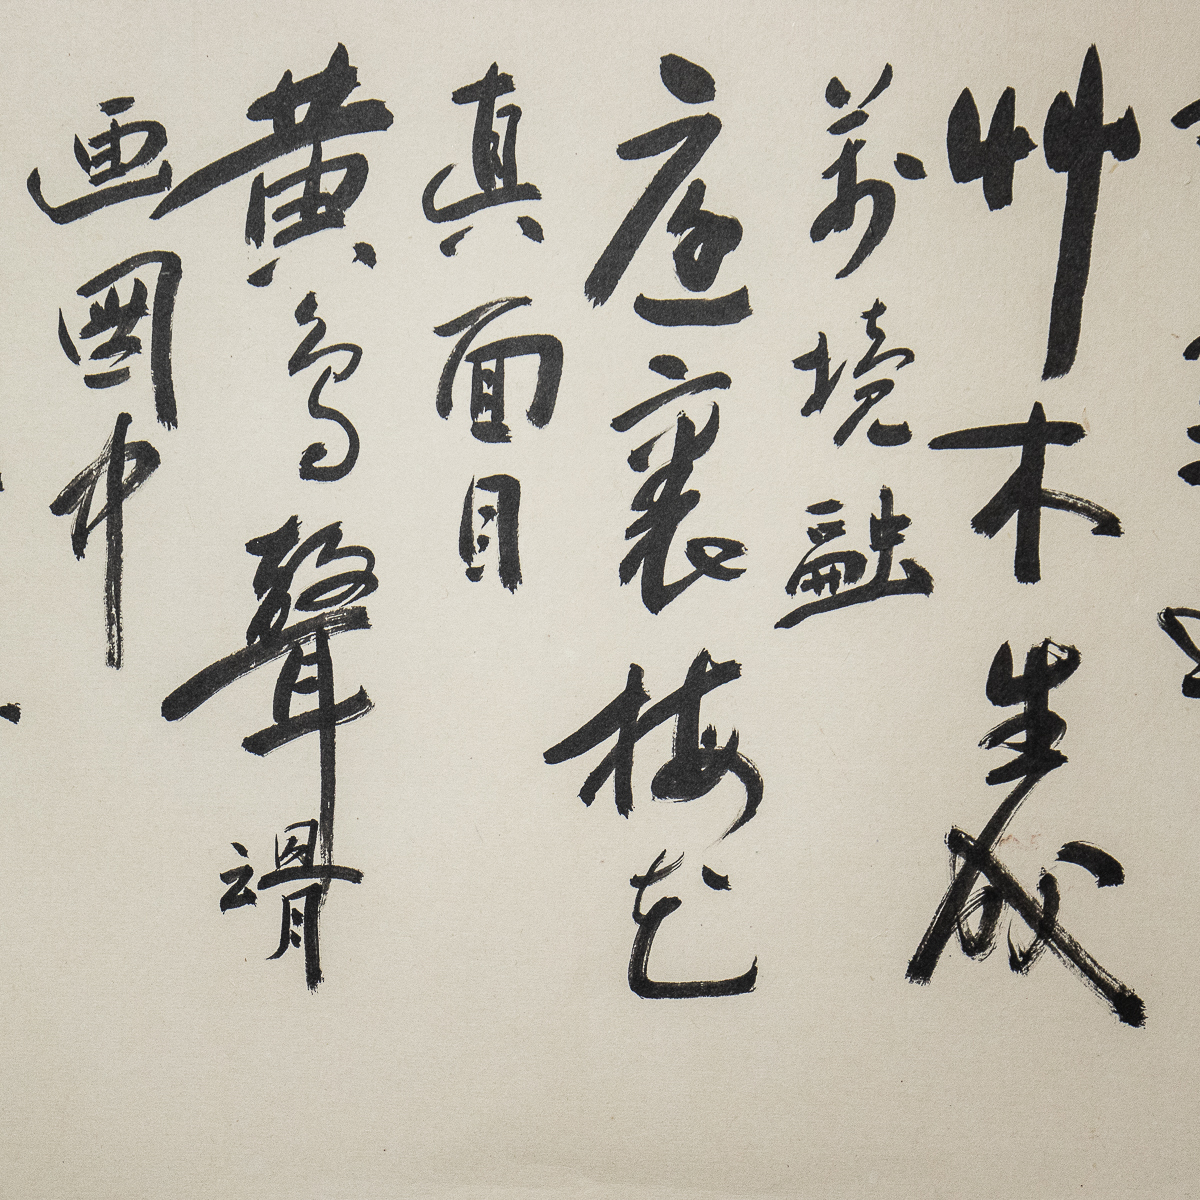 艸木生成
萬境融
庭裏梅花
真面目
黄鳥聲滑
画圖中